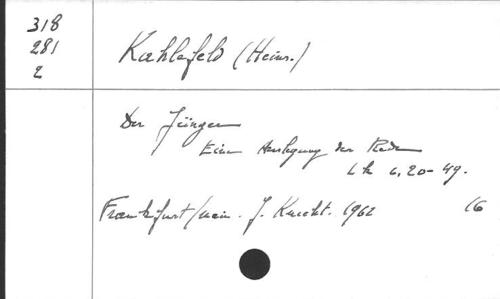 318
281
2
Kahlefeld (Heinr.)
Der Jünger
Eine Auslegung der Rede
Lk 6, 20-49.
Frankfurt/Main. J. Knecht. 1962 16